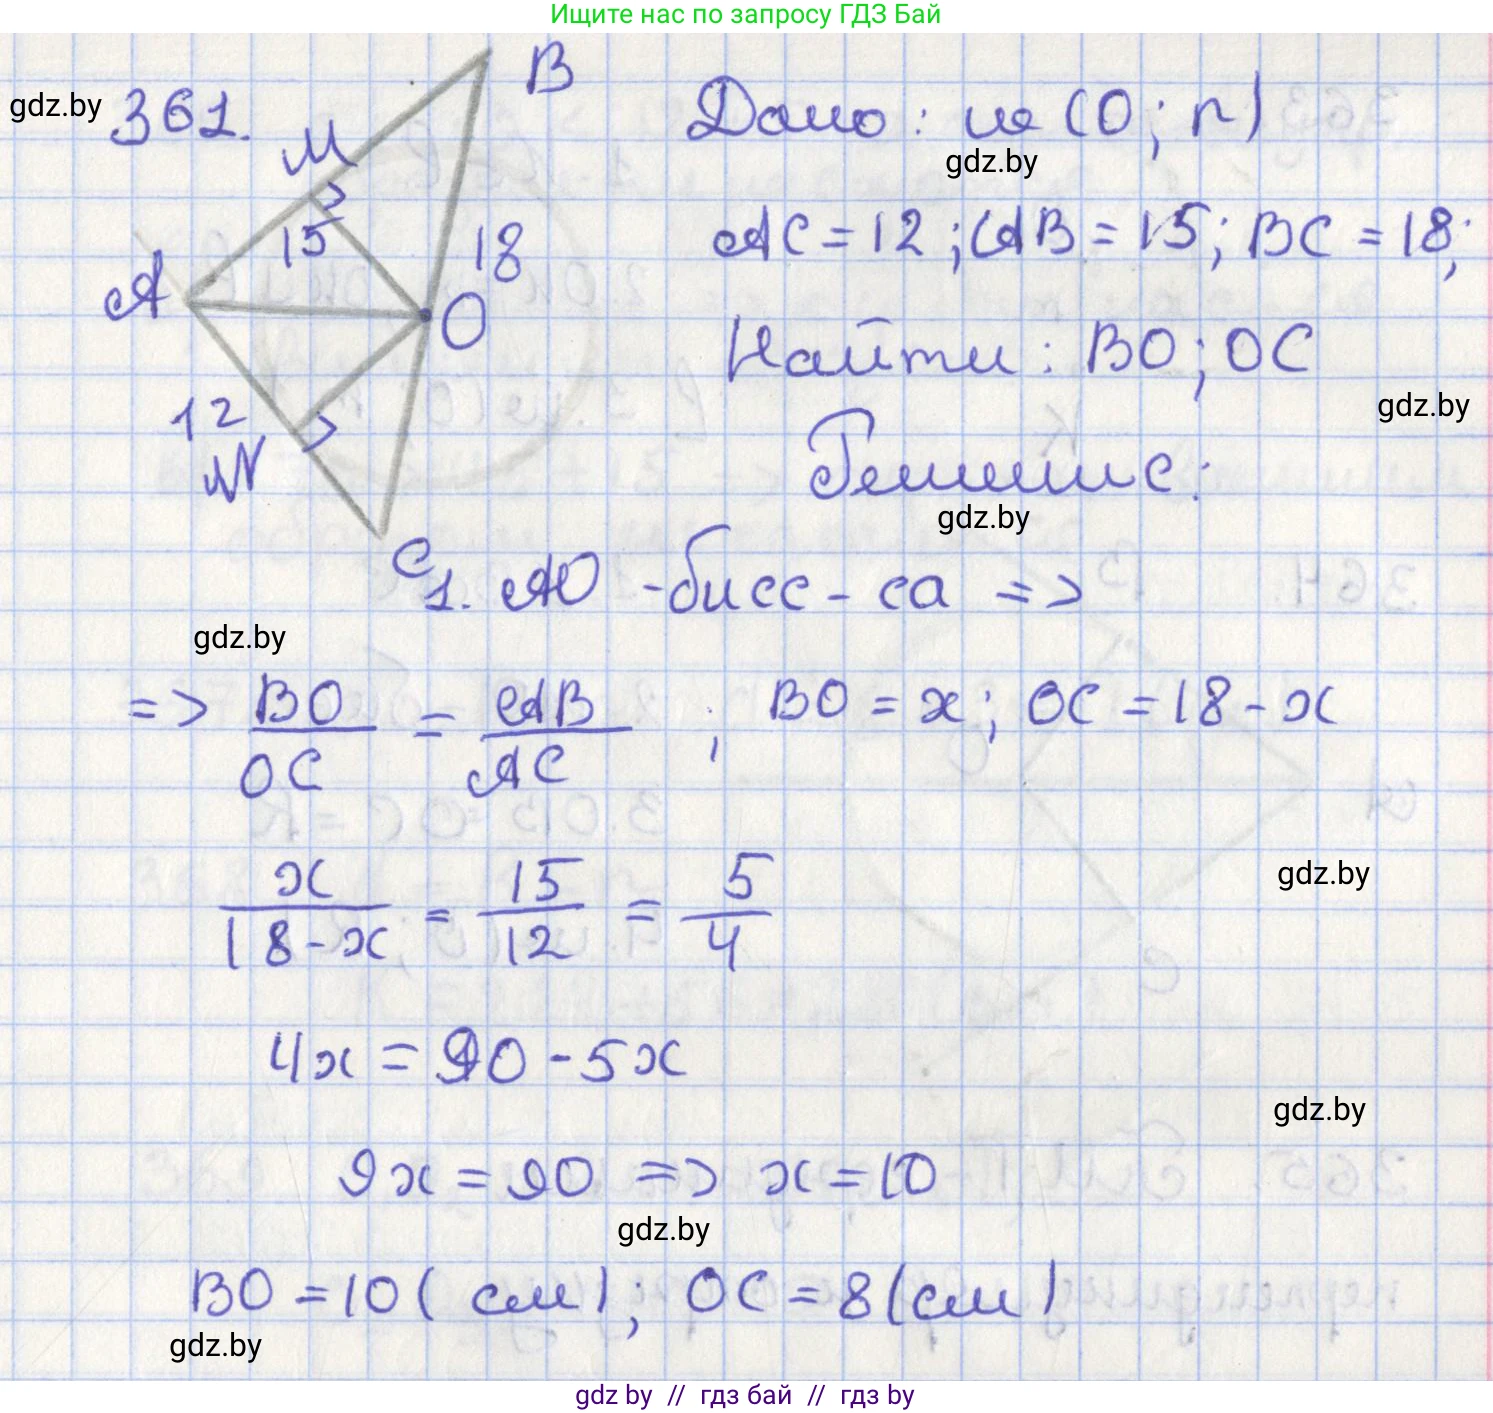 Ищите нас по запросу ГДЗ Бай
gdz.by
361.
B
M
Дано: (O; r)
gdz.by
15
18
AC = 12; AB = 15; BC = 18;
A
O
Найти: BO; OC
gdz.by
12
N
Решение:
gdz.by
C
1. AO - бисс-са =>
gdz.by
=> BO/OC = AB/AC ; BO = x; OC = 18 - x
x/(18-x) = 15/12 = 5/4
gdz.by
4x = 90 - 5x
gdz.by
9x = 90 => x = 10
gdz.by
BO = 10 (см); OC = 8 (см)
gdz.by
gdz by // гдз бай // гдз by